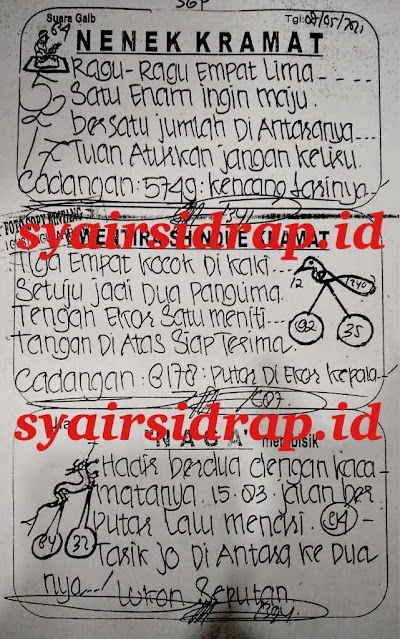 SGP
Suara Gaib
Tgl: 08/05/2021
NENEK KRAMAT
Ragu-Ragu Empat Lima
Satu Enam ingin maju.
bersatu jumlah Di Antaranya
Tuan Aturkan jangan keliru.
Cadangan: 5749: kencang larinya
syairsidrap.id
KRAMAT
Tiga Empat kocok Di kaki
Setuju jadi Dua Panglima.
Tengah Ekor Satu meniti
tangan Di Atas Siap Terima.
12
240
92
35
Cadangan: 6178: Putar Di Ekor kepala
syairsidrap.id
NAGA
Hadir berdua dengan kaca-
matanya. 15.03. jalan ber
putar lalu mencari. 04 -
04
Tarik jo Di Antara ke Dua
nya